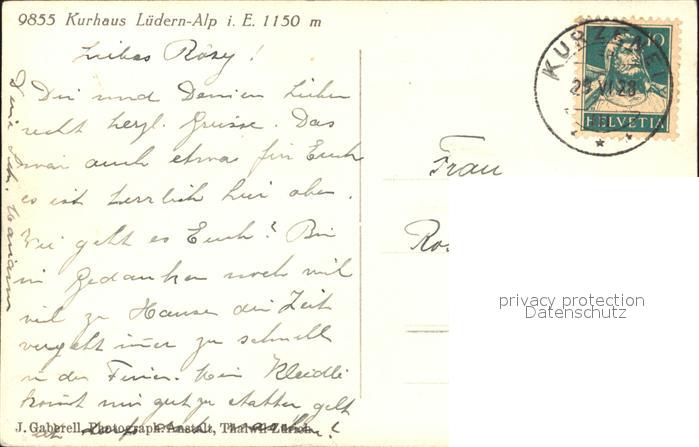 9855 Kurhaus Lüdern-Alp i. E. 1150 m
Liebes Rösy!
Dir und Deinen Lieben
recht herzl. Grüsse. Das
wär auch etwas für Euch
es ist herrlich hier oben.
Wie geht es Euch? Bin
in Gedanken noch viel
viel zu Hause die Zeit
vergeht immer zu schnell
in den Ferien. Mein Kleidli
kommt mir gut zu statten gelt
J. Gaberell, Photograph. Anstalt, Thalwil-Zürich.
KURZENEI
VI 28
10
HELVETIA
Frau
privacy protection
Datenschutz